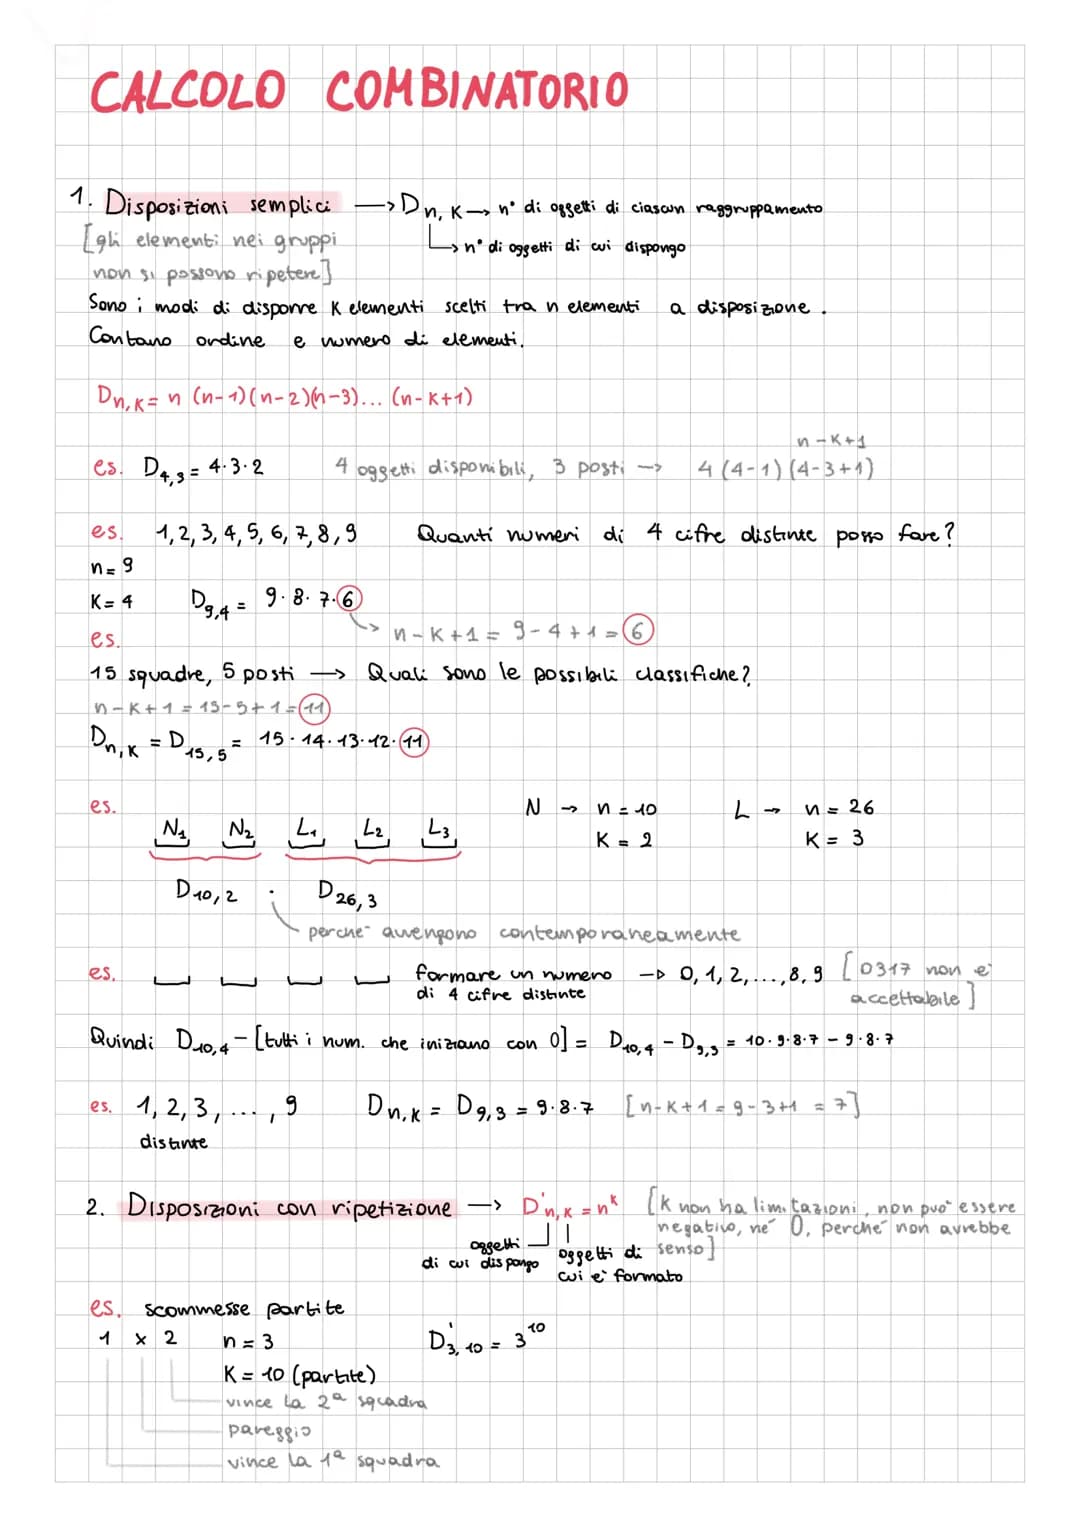 CALCOLO COMBINATORIO
1. Disposizioni semplici → Dn,K → n° di oggetti di ciascun raggruppamento
[gli elementi nei gruppi ↳ n° di oggetti di cui dispongo
non si possono ripetere]
Sono i modi di disporre K elementi scelti tra n elementi a disposizione.
Contano ordine e numero di elementi.
Dn,K = n (n-1)(n-2)(n-3)... (n-K+1)
n-K+1
es. D4,3 = 4·3·2 4 oggetti disponibili, 3 posti → 4 (4-1) (4-3+1)
es. 1, 2, 3, 4, 5, 6, 7, 8, 9 Quanti numeri di 4 cifre distinte posso fare?
n = 9
K = 4 D9,4 = 9·8·7·6
→ n-K+1 = 9-4+1 = 6
es.
15 squadre, 5 posti → Quali sono le possibili classifiche?
n-K+1 = 15-5+1 = 11
Dn,K = D15,5 = 15·14·13·12·11
es. N → n = 10 L → n = 26
N1 N2 L1 L2 L3 K = 2 K = 3
D10,2 · D26,3
perché avvengono contemporaneamente
es. formare un numero → 0, 1, 2, ..., 8, 9 [0317 non è
di 4 cifre distinte accettabile]
Quindi D10,4 - [tutti i num. che iniziano con 0] = D10,4 - D9,3 = 10·9·8·7 - 9·8·7
es. 1, 2, 3, ..., 9 Dn,K = D9,3 = 9·8·7 [n-K+1 = 9-3+1 = 7]
distinte
2. Disposizioni con ripetizione → D'n,K = n^K [K non ha limitazioni, non può essere
negativo, né 0, perché non avrebbe
senso]
oggetti di cui dispongo
oggetti di cui è formato
es. scommesse partite
1 x 2 n = 3 D'3,10 = 3^10
K = 10 (partite)
vince la 2ª squadra
pareggio
vince la 1ª squadra